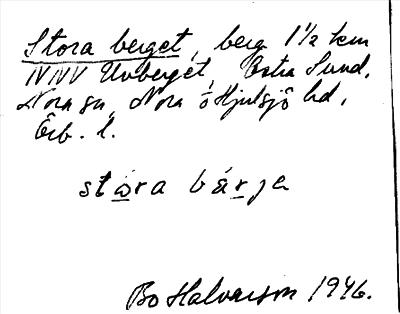 Stora berget, berg 1½ km
NNV Uvberget, Östra Sund,
Nora sn, Nora o Hjulsjö hd,
Örb. l.
stora bärje
Bo Halvarson 1946.